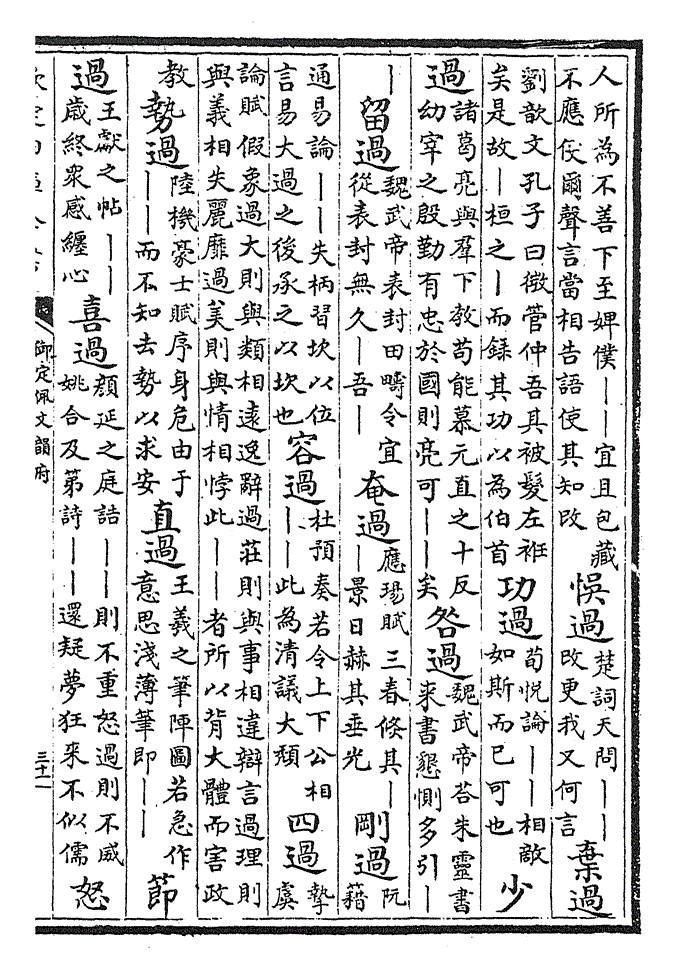 人所為不善下至婢僕——宜且包藏不應伇爾聲言當相告語使其知改悞過楚詞天問——改更我又何言棄過
劉歆文孔子曰微管仲吾其被髮左袵矣是故—桓之—而録其功以為伯首功過荀悦論——相敵如斯而已可也少
過諸葛亮與羣下教苟能慕元直之十反幼宰之殷勤有忠於國則亮可——矣咎過魏武帝荅朱靈書來書懇惻多引—
—留過魏武帝表封田疇令宜從表封無久—吾—奄過應瑒賦三春倐其——景日赫其垂光剛過阮籍
通易論——失柄習坎以位言易大過之後承之以坎也容過杜預奏若令上下公相——此為清議大頽四過摯虞
論賦假象過大則與類相遠逸辭過莊則與事相違辯言過理則與義相失麗靡過美則與情相悖此——者所以背大體而害政
教勢過陸機豪士賦序身危由于——而不知去勢以求安直過王羲之筆陣圖若急作意思淺薄筆即——節
過王獻之帖——歲終衆感纏心喜過顔延之庭誥——則不重怒過則不威姚合及第詩——還疑夢狂來不似儒怒
御定佩文韻府
三十一